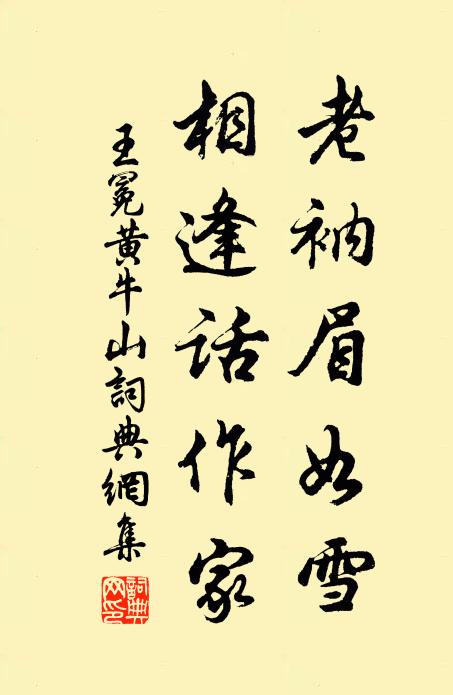 老衲眉如雪
相逢話作家
王冕黃牛山詞典網集
詞典網印